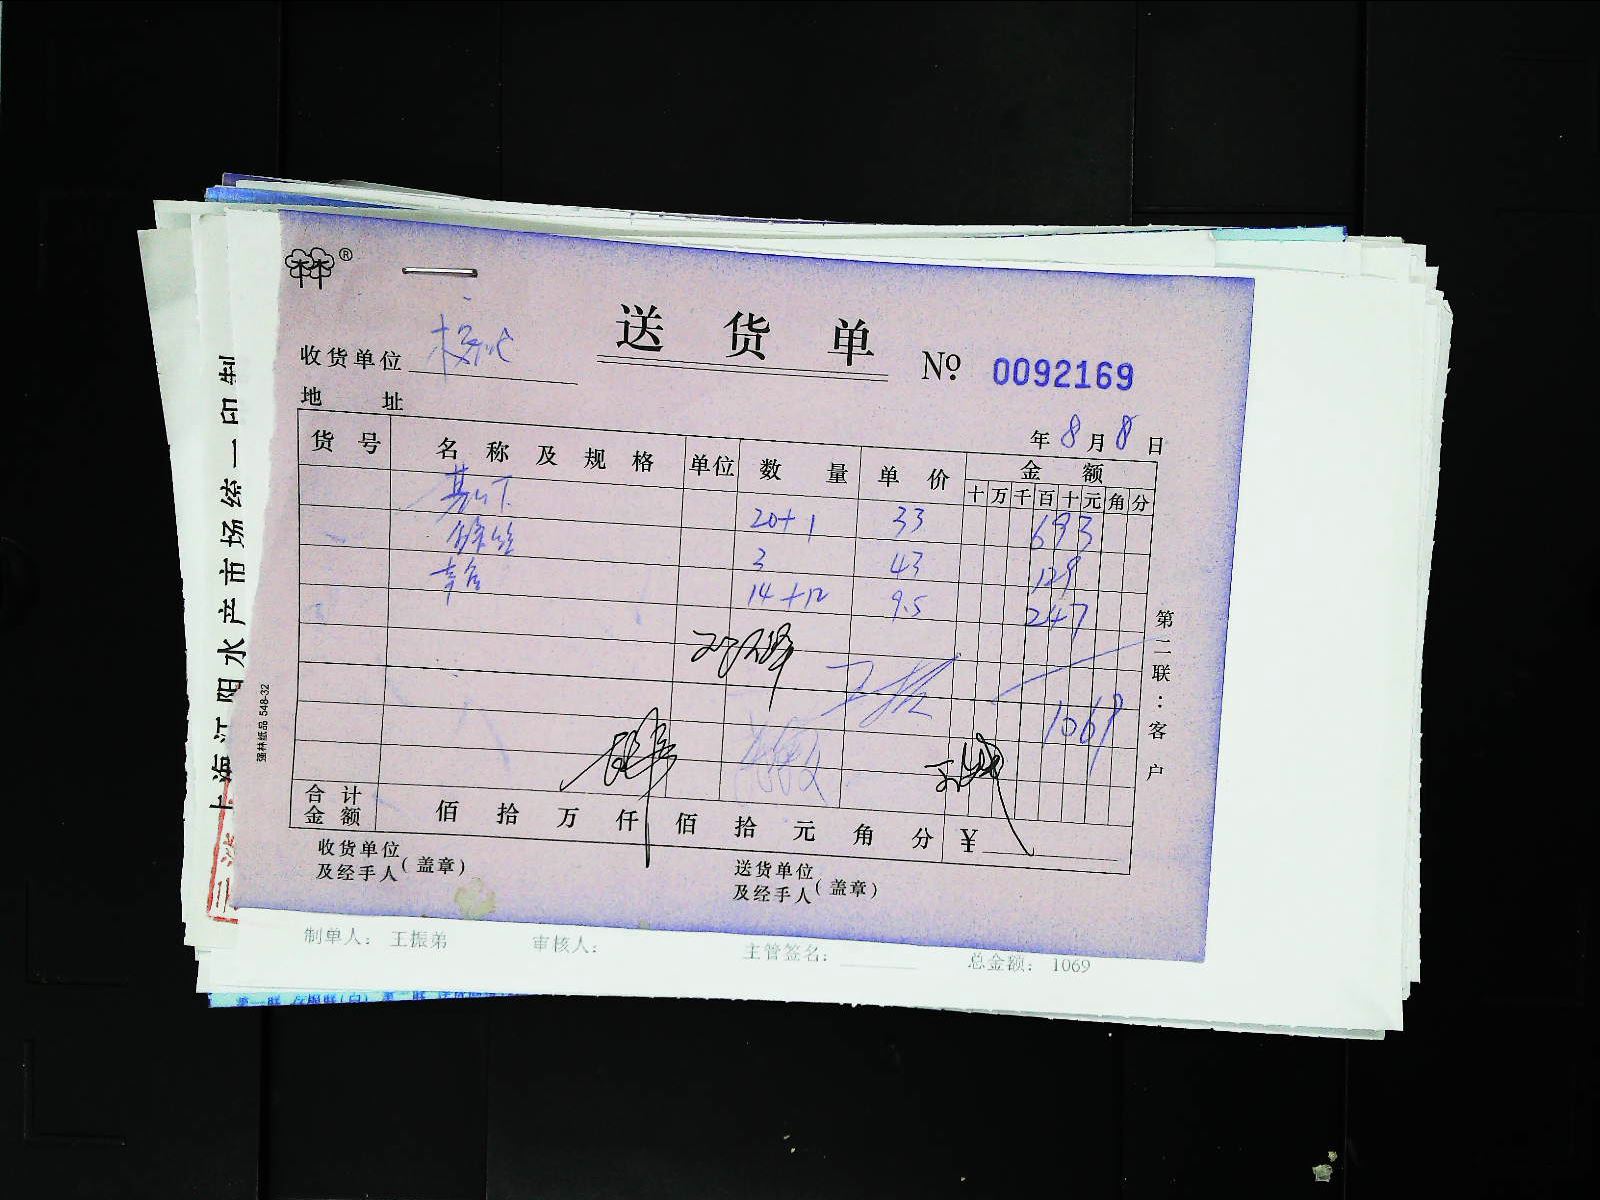 ®
送货单
收货单位
№ 0092169
地址
年 8 月 8 日
货号 名称及规格 单位 数量 单价 金额
十 万 千 百 十 元 角 分
20+1 33 693
3 43 129
14+12 9.5 247
1069
合计金额 佰 拾 万 仟 佰 拾 元 角 分 ¥
收货单位及经手人(盖章)
送货单位及经手人(盖章)
第二联:客户
强林纸品 548-32
水产市场统一印制
制单人: 王振弟 审核人: 主管签名: 总金额: 1069